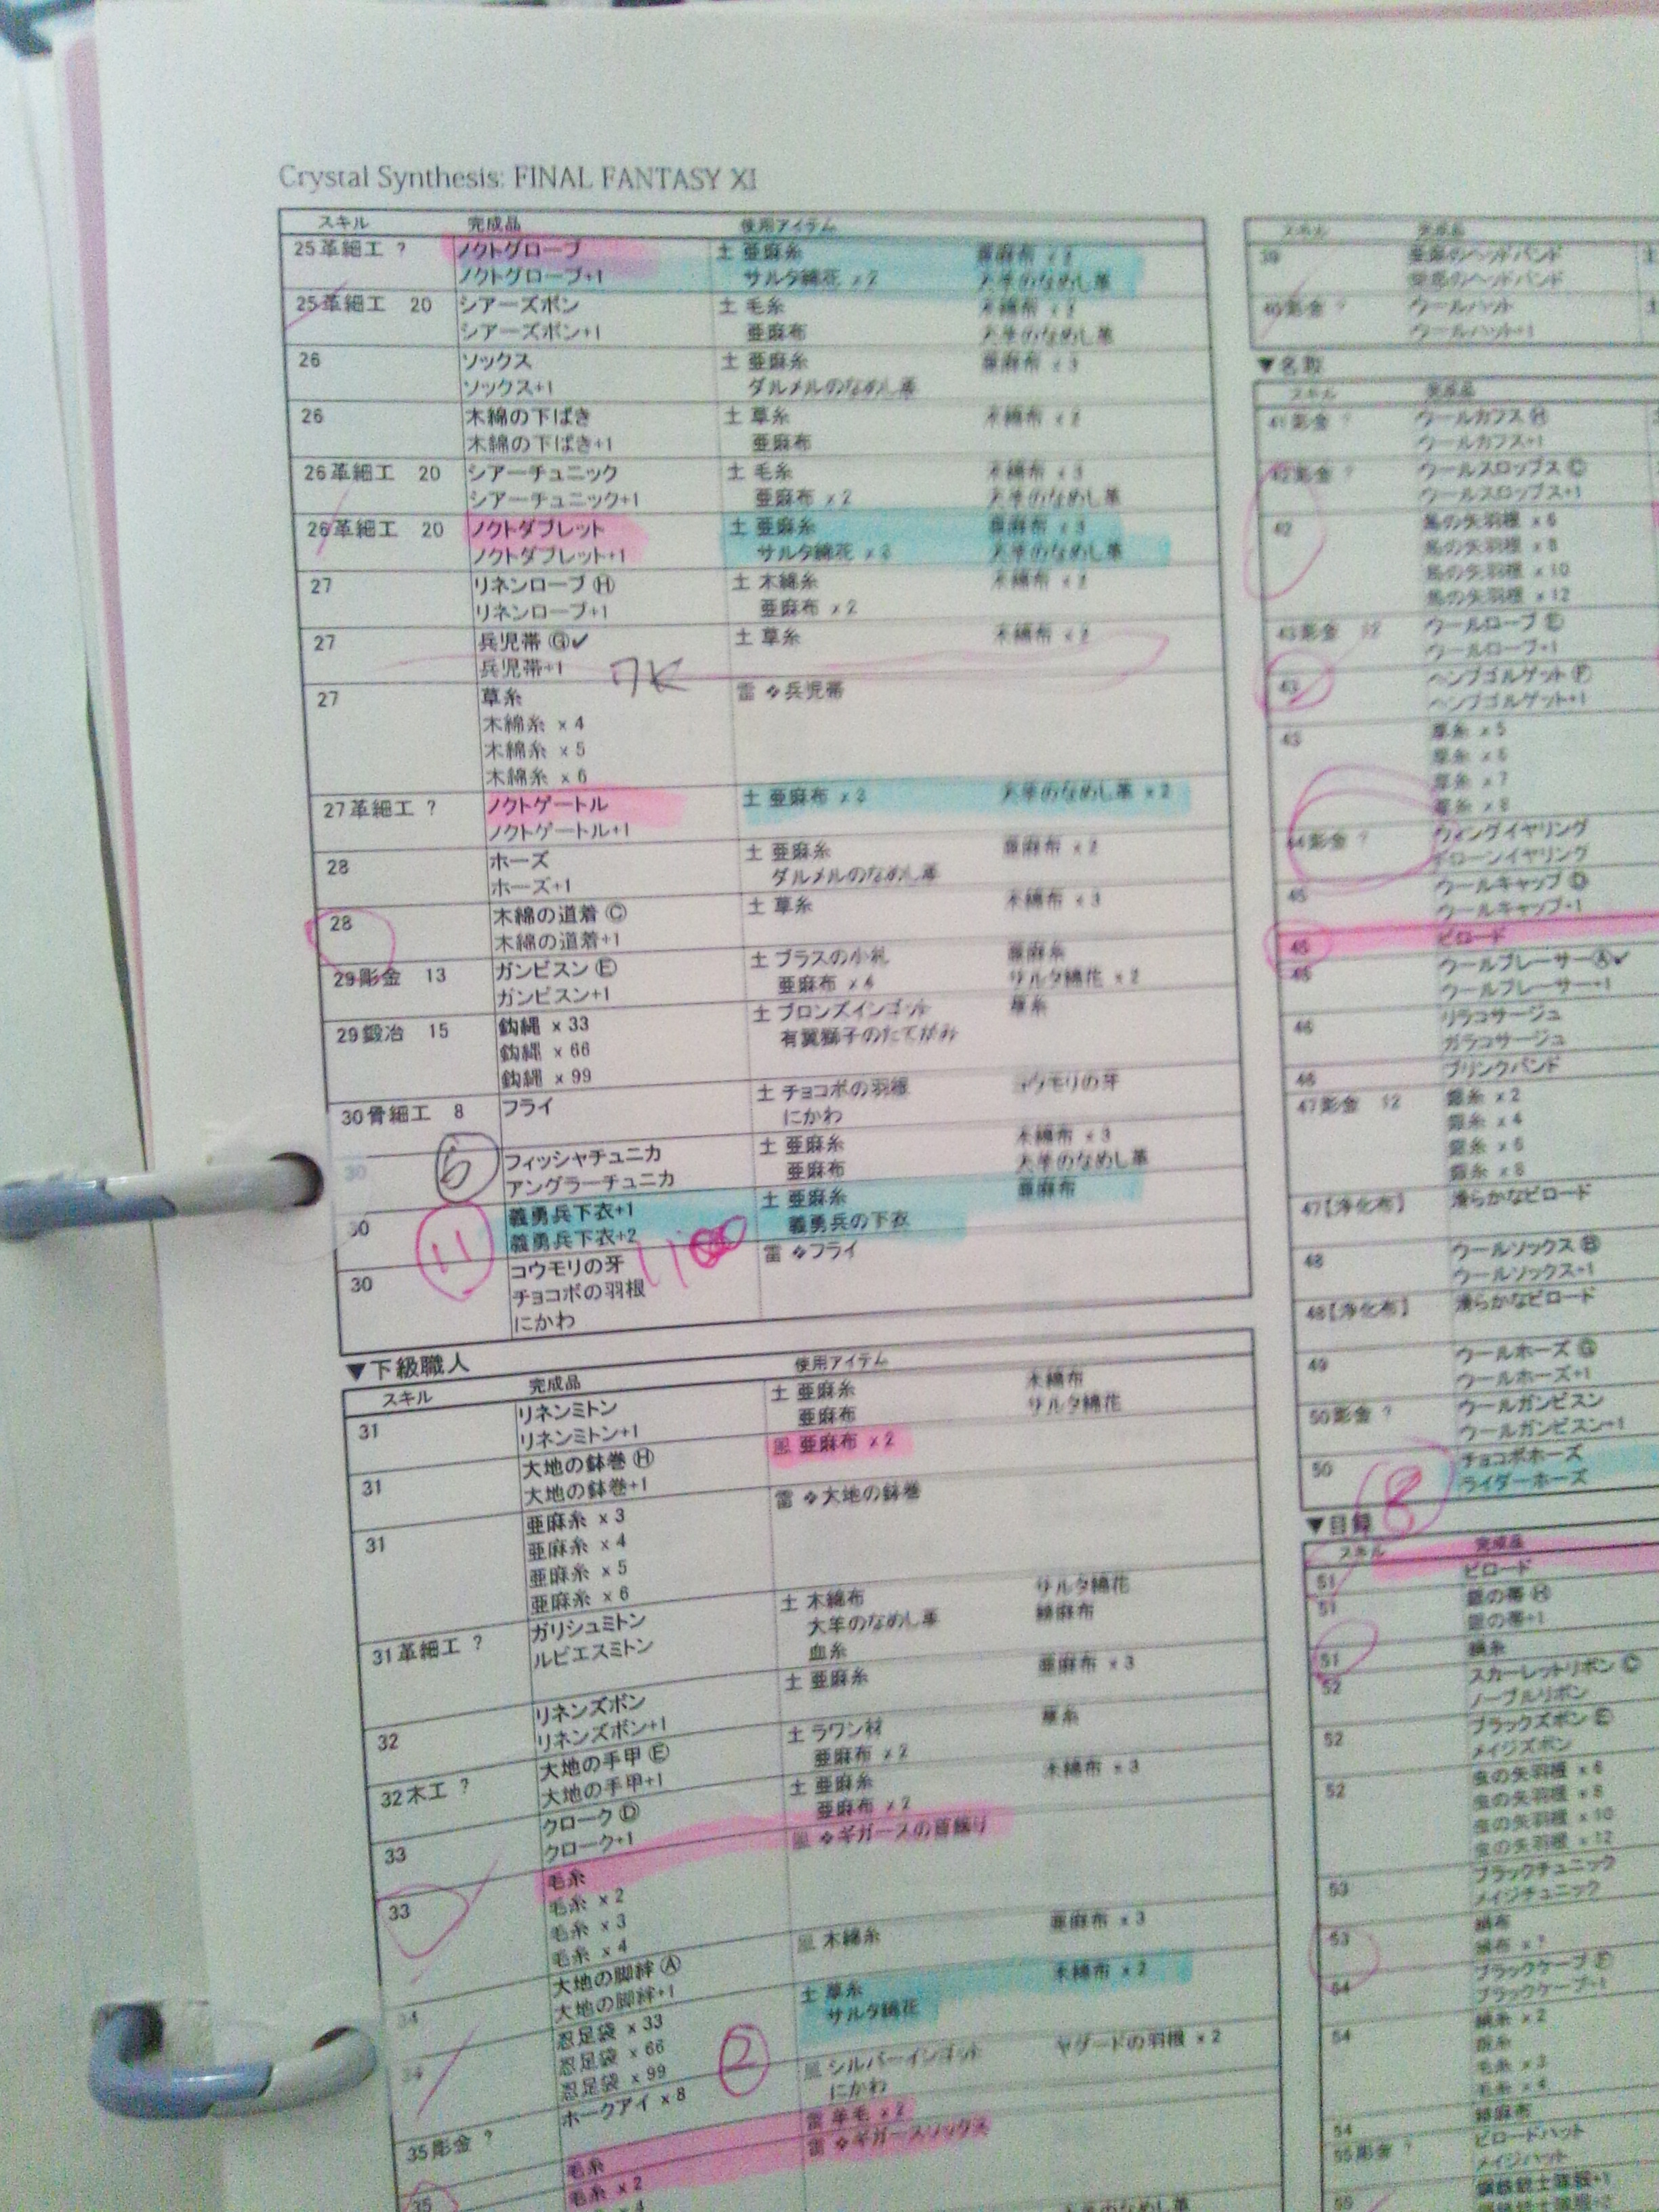 Crystal Synthesis: FINAL FANTASY XI
スキル 完成品 使用アイテム
25革細工 ? ノクトグローブ 土 亜麻糸 亜麻布 x 2
ノクトグローブ+1 サルタ綿花 x 2 大羊のなめし革
25革細工 20 シアーズボン 土 毛糸 木綿布 x 2
シアーズボン+1 亜麻布 大羊のなめし革
26 ソックス 土 亜麻糸 亜麻布 x 3
ソックス+1 ダルメルのなめし革
26 木綿の下ばき 土 草糸 木綿布 x 2
木綿の下ばき+1 亜麻布
26革細工 20 シアーチュニック 土 毛糸 木綿布 x 3
シアーチュニック+1 亜麻布 x 2 大羊のなめし革
26革細工 20 ノクトダブレット 土 亜麻糸 亜麻布 x 3
ノクトダブレット+1 サルタ綿花 x 3 大羊のなめし革
27 リネンローブ Ⓗ 土 木綿糸 木綿布 x 2
リネンローブ+1 亜麻布 x 2
27 兵児帯 Ⓖ✓ 土 草糸 木綿布 x 2
兵児帯+1 7K
27 草糸 雷 ❖兵児帯
木綿糸 x 4
木綿糸 x 5
木綿糸 x 6
27革細工 ? ノクトゲートル 土 亜麻布 x 3 大羊のなめし革 x 2
ノクトゲートル+1
28 ホーズ 土 亜麻糸 亜麻布 x 2
ホーズ+1 ダルメルのなめし革
28 木綿の道着 Ⓒ 土 草糸 木綿布 x 3
木綿の道着+1
29彫金 13 ガンビスン Ⓔ 土 ブラスの小札 亜麻糸
ガンビスン+1 亜麻布 x 4 サルタ綿花 x 2
29鍛冶 15 鈎縄 x 33 土 ブロンズインゴット 草糸
鈎縄 x 66 有翼獅子のたてがみ
鈎縄 x 99
30骨細工 8 フライ 土 チョコボの羽根 コウモリの牙
にかわ
30 フィッシャチュニカ 土 亜麻糸 木綿布 x 3
アングラーチュニカ 亜麻布 大羊のなめし革
30 11 義勇兵下衣+1 土 亜麻糸 亜麻布
義勇兵下衣+2 義勇兵の下衣
30 コウモリの牙 雷 ❖フライ
チョコボの羽根
にかわ
▼下級職人
スキル 完成品 使用アイテム
31 リネンミトン 土 亜麻糸 木綿布
リネンミトン+1 亜麻布 サルタ綿花
31 大地の鉢巻 Ⓗ 風 亜麻布 x 2
大地の鉢巻+1
31 亜麻糸 x 3 雷 ❖大地の鉢巻
亜麻糸 x 4
亜麻糸 x 5
亜麻糸 x 6
31革細工 ? ガリシュミトン 土 木綿布 サルタ綿花
ルビエスミトン 大羊のなめし革 綿麻布
血糸
32 リネンズボン 土 亜麻糸 亜麻布 x 3
リネンズボン+1
32木工 ? 大地の手甲 Ⓔ 土 ラワン材 草糸
大地の手甲+1 亜麻布 x 2
33 クローク Ⓓ 土 亜麻糸 木綿布 x 3
クローク+1 亜麻布 x 2
33 毛糸 風 ❖ギガースの首飾り
毛糸 x 2
毛糸 x 3
毛糸 x 4
34 大地の脚絆 Ⓐ 風 木綿糸 亜麻布 x 3
大地の脚絆+1
34 忍足袋 x 33 土 草糸 木綿布 x 2
忍足袋 x 66 サルタ綿花
忍足袋 x 99 2
35彫金 ? ホークアイ x 8 風 シルバーインゴット ヤグードの羽根 x 2
にかわ
毛糸 雷 羊毛 x 2
35 毛糸 x 2 雷 ❖ギガースソックス
大羊のなめし革
スキル 完成品
39
40彫金 ? ウールハット
ウールハット+1
▼名取
スキル 完成品
41彫金 ? ウールカフス Ⓗ
ウールカフス+1
42彫金 ? ウールスロップス Ⓒ
ウールスロップス+1
42 鳥の矢羽根 x 6
鳥の矢羽根 x 8
鳥の矢羽根 x 10
鳥の矢羽根 x 12
43彫金 12 ウールローブ Ⓔ
ウールローブ+1
43 ヘンプゴルゲット Ⓕ
ヘンプゴルゲット+1
43 草糸 x 5
草糸 x 6
草糸 x 7
草糸 x 8
44彫金 ? ウィングイヤリング
ドローンイヤリング
45 ウールキャップ Ⓓ
ウールキャップ+1
45 ビロード
46 ウールブレーサー Ⓐ✓
ウールブレーサー+1
46 リラコサージュ
ガラコサージュ
46 ブリンクバンド
47彫金 12 銀糸 x 2
銀糸 x 4
銀糸 x 6
銀糸 x 8
47【浄化布】 滑らかなビロード
48 ウールソックス Ⓑ
ウールソックス+1
48【浄化布】 滑らかなビロード
49 ウールホーズ Ⓖ
ウールホーズ+1
50彫金 ? ウールガンビスン
ウールガンビスン+1
50 チョコボホーズ
ライダーホーズ
8
▼目録
スキル 完成品
51 ビロード
51 銀の帯 Ⓗ
銀の帯+1
51 絹糸
52 スカーレットリボン Ⓒ
ノーブルリボン
52 ブラックズボン Ⓔ
メイジズボン
52 虫の矢羽根 x 6
虫の矢羽根 x 8
虫の矢羽根 x 10
虫の矢羽根 x 12
53 ブラックチュニック
メイジチュニック
53 絹布
絹布 x ?
54 ブラックケープ Ⓕ
ブラックケープ+1
54 絹糸 x 2
銀糸
毛糸 x 3
毛糸 x 4
54 綿麻布
55彫金 ? ビロードハット
メイジハット
55